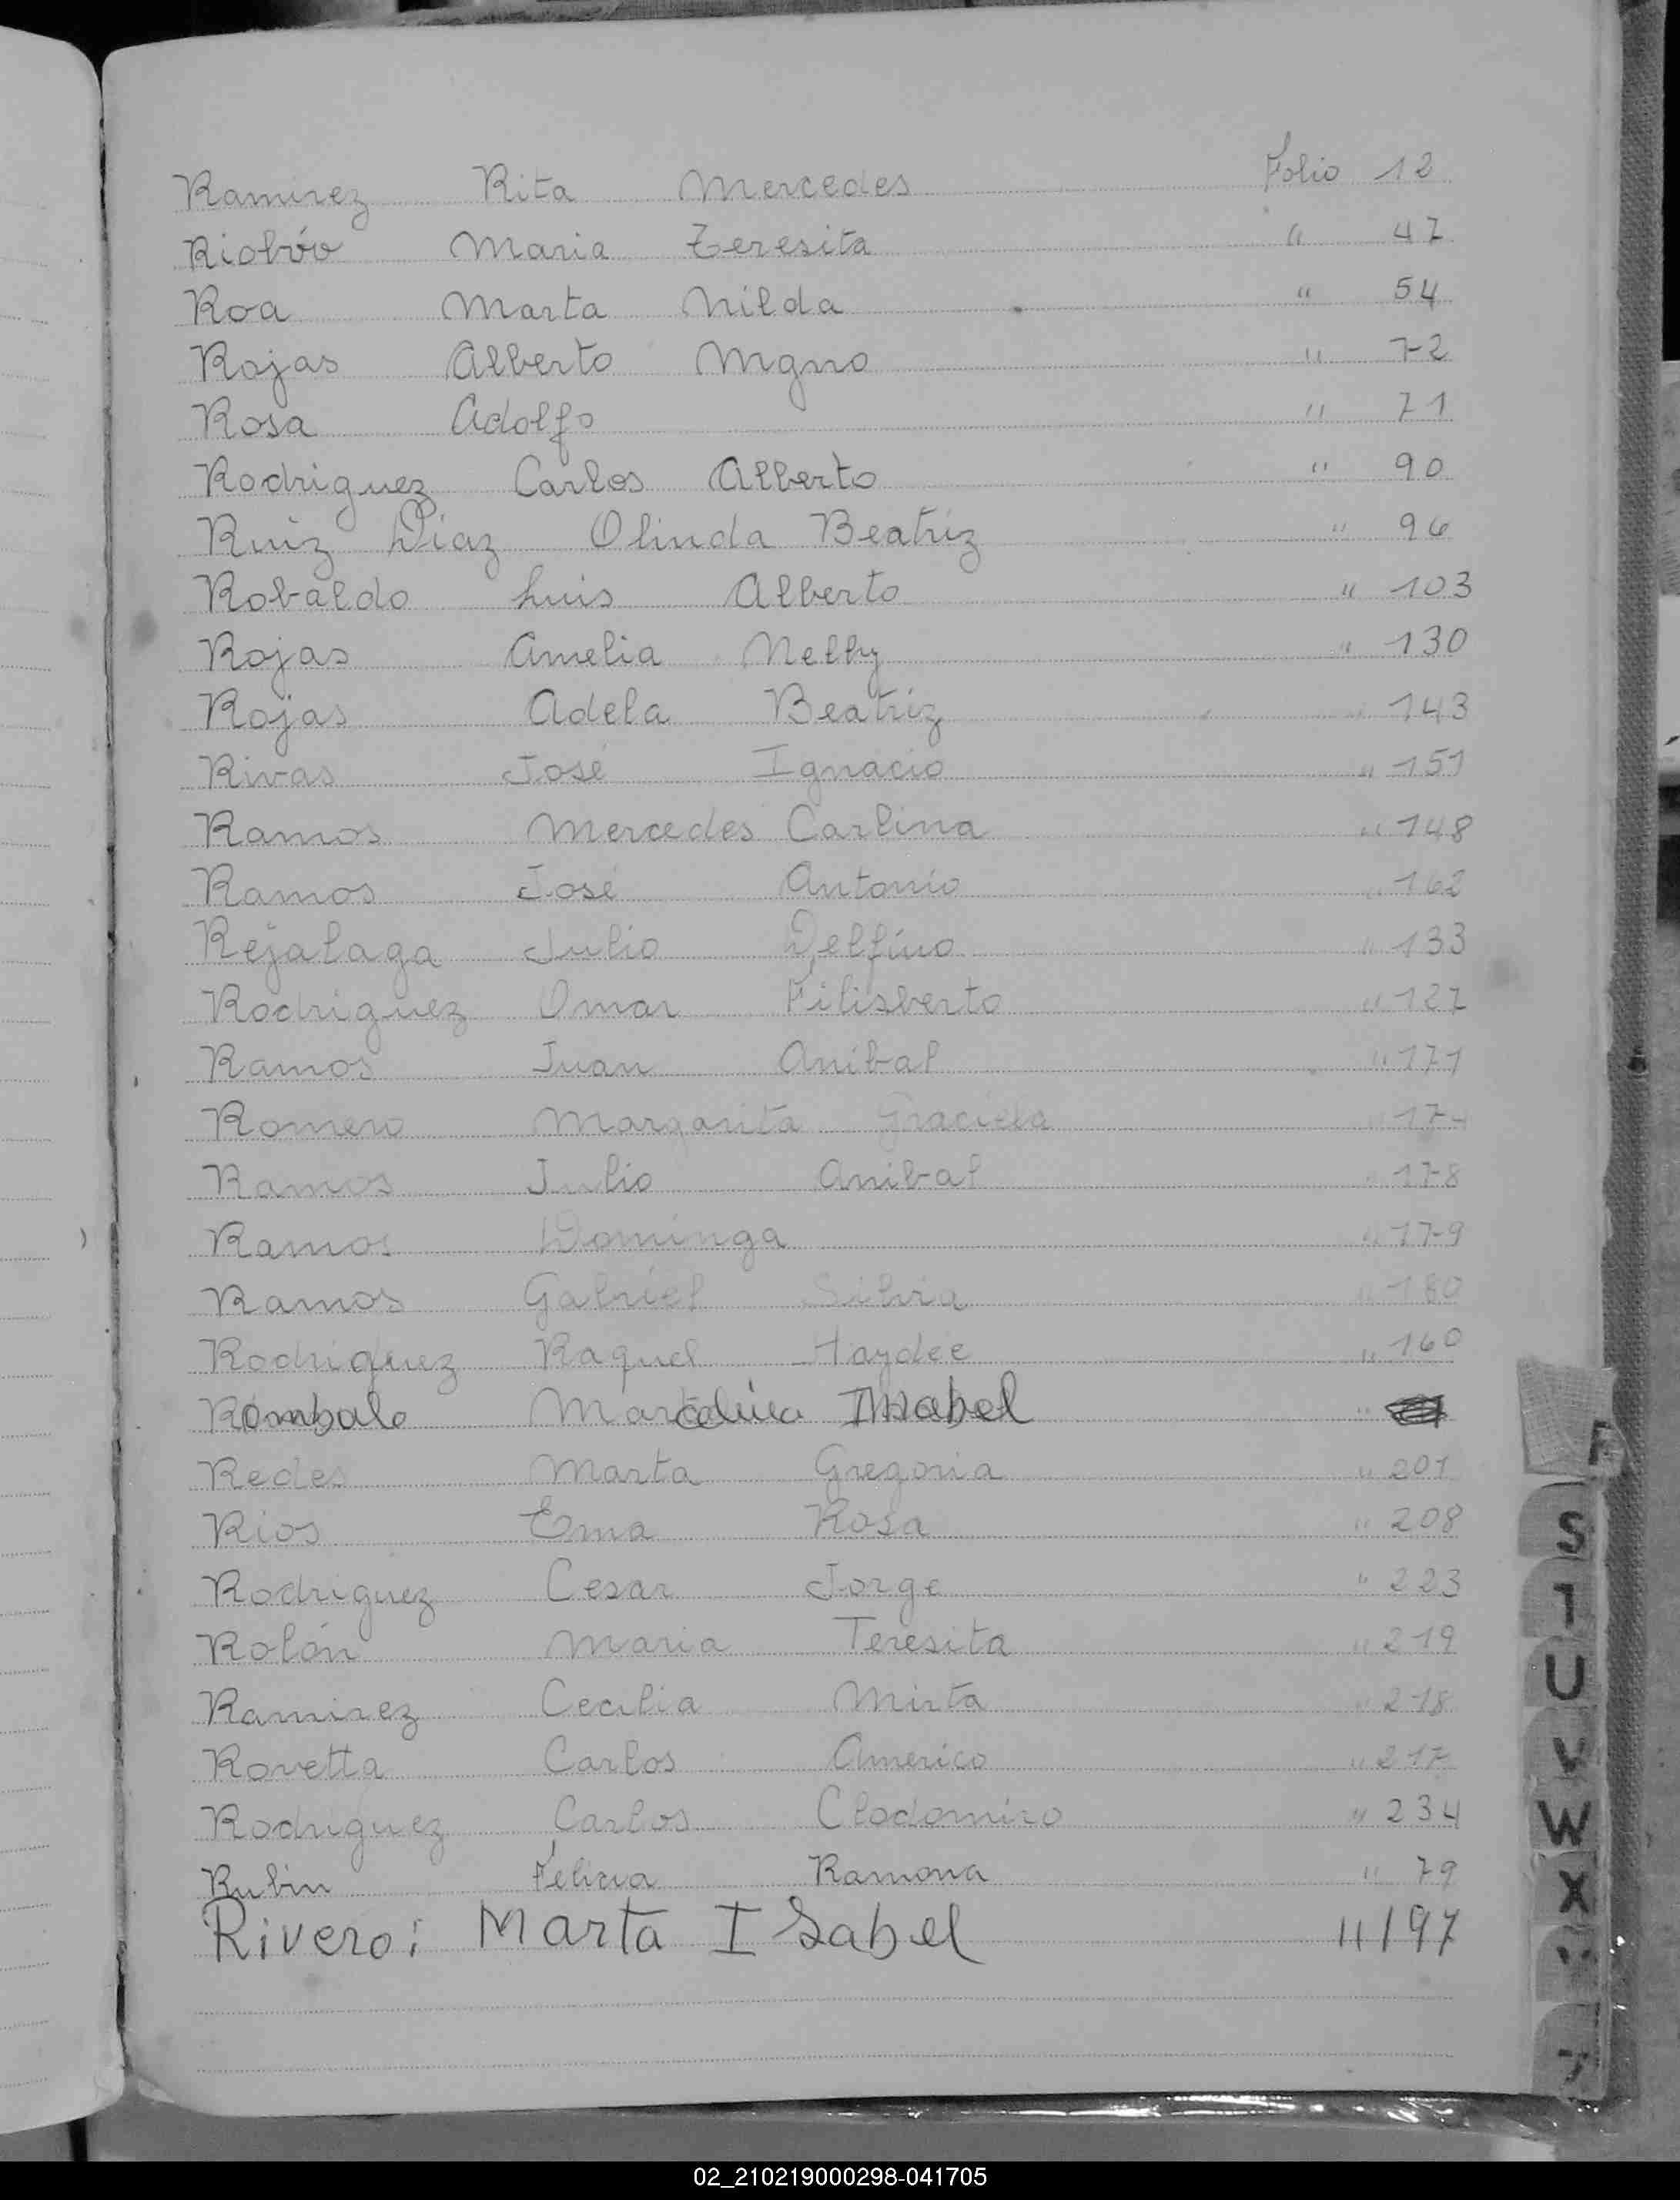 Ramirez Rita Mercedes Folio 12
Riobóo Maria Teresita " 47
Roa Marta Nilda " 54
Rojas Alberto Mgno " 72
Rosa Adolfo " 71
Rodriguez Carlos Alberto " 90
Ruiz Diaz Olinda Beatriz " 96
Robaldo Luis Alberto " 103
Rojas Amelia Nelly " 130
Rojas Adela Beatriz " 143
Rivas José Ignacio " 151
Ramos Mercedes Carlina " 148
Ramos José Antonio " 162
Rejalaga Julio Delfino " 133
Rodriguez Omar Filisberto " 127
Ramos Juan Anibal " 171
Romero Margarita Graciela
Ramos Julio Anibal " 178
Ramos Dominga " 179
Ramos Gabriel Silvia " 180
Rodriguez Raquel Haydee " 160
Rombalo "
Redes Marta Gregoria " 201
Rios Ema Rosa " 208
Rodriguez Cesar Jorge " 223
Rolón Maria Teresita " 219
Ramirez Cecilia Mirta " 218
Rovetta Carlos Americo " 217
Rodriguez Carlos Clodomiro " 234
Rubin Felicia Ramona " 79
Rivero: Marta ISabel " 197
R
S
T
U
V
W
X
Y
Z
02_210219000298-041705